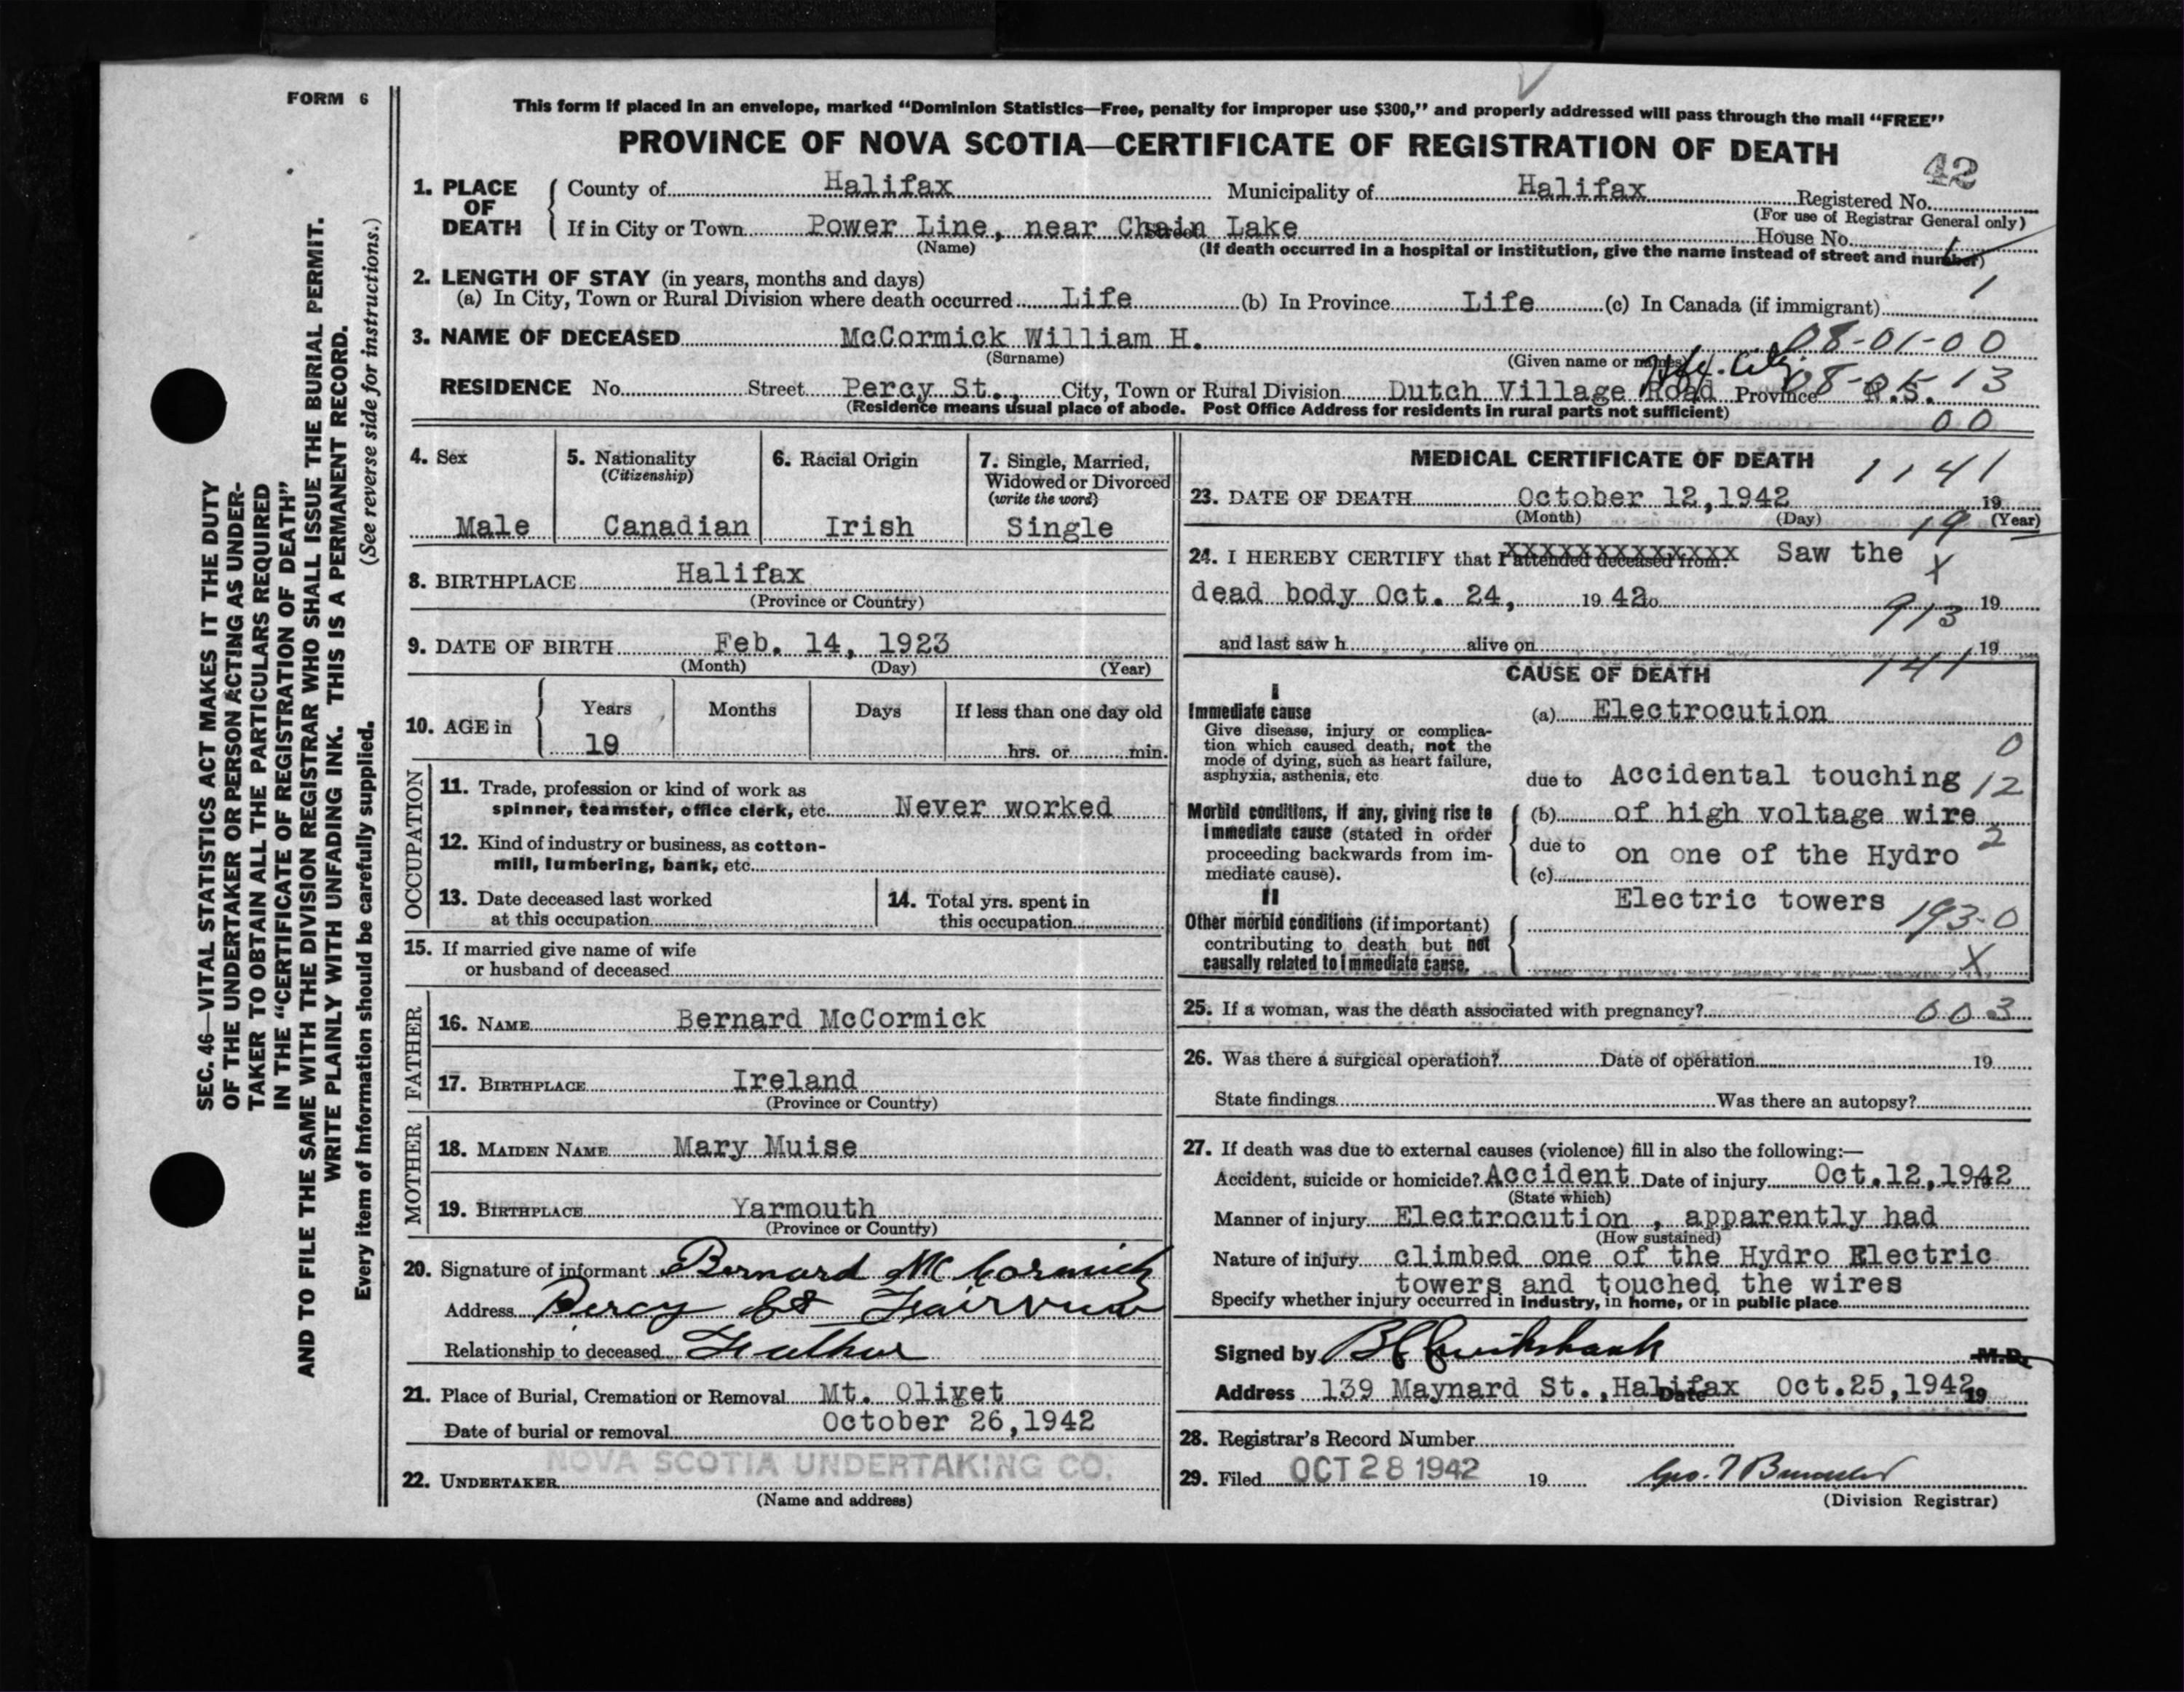 FORM 6
This form if placed in an envelope, marked “Dominion Statistics—Free, penalty for improper use $300,” and properly addressed will pass through the mail “FREE”
PROVINCE OF NOVA SCOTIA—CERTIFICATE OF REGISTRATION OF DEATH
42
SEC. 46—VITAL STATISTICS ACT MAKES IT THE DUTY
OF THE UNDERTAKER OR PERSON ACTING AS UNDER-
TAKER TO OBTAIN ALL THE PARTICULARS REQUIRED
IN THE “CERTIFICATE OF REGISTRATION OF DEATH”
AND TO FILE THE SAME WITH THE DIVISION REGISTRAR WHO SHALL ISSUE THE BURIAL PERMIT.
WRITE PLAINLY WITH UNFADING INK. THIS IS A PERMANENT RECORD.
Every item of information should be carefully supplied. (See reverse side for instructions.)
1. PLACE OF DEATH
County of Halifax Municipality of Halifax Registered No.
(For use of Registrar General only)
If in City or Town Power Line, near Chain Lake Street House No.
(Name) (If death occurred in a hospital or institution, give the name instead of street and number)
2. LENGTH OF STAY (in years, months and days)
(a) In City, Town or Rural Division where death occurred Life (b) In Province Life (c) In Canada (if immigrant)
1
3. NAME OF DECEASED McCormick William H. 08-01-00
(Surname) (Given name or names)
Hfx. City
RESIDENCE No. Street Percy St., City, Town or Rural Division Dutch Village Road Province N.S.
(Residence means usual place of abode. Post Office Address for residents in rural parts not sufficient)
00
4. Sex
Male
5. Nationality
(Citizenship)
Canadian
6. Racial Origin
Irish
7. Single, Married,
Widowed or Divorced
(write the word)
Single
8. BIRTHPLACE Halifax
(Province or Country)
9. DATE OF BIRTH Feb. 14, 1923
(Month) (Day) (Year)
10. AGE in Years Months Days If less than one day old
19 hrs. or min.
OCCUPATION
11. Trade, profession or kind of work as
spinner, teamster, office clerk, etc. Never worked
12. Kind of industry or business, as cotton-
mill, lumbering, bank, etc.
13. Date deceased last worked
at this occupation
14. Total yrs. spent in
this occupation
15. If married give name of wife
or husband of deceased
FATHER
16. NAME Bernard McCormick
17. BIRTHPLACE Ireland
(Province or Country)
MOTHER
18. MAIDEN NAME Mary Muise
19. BIRTHPLACE Yarmouth
(Province or Country)
20. Signature of informant Bernard McCormick
Address Percy St Fairview
Relationship to deceased Father
21. Place of Burial, Cremation or Removal Mt. Olivet
Date of burial or removal October 26,1942
NOVA SCOTIA UNDERTAKING CO.
22. UNDERTAKER
(Name and address)
MEDICAL CERTIFICATE OF DEATH
1141
23. DATE OF DEATH October 12,1942 19
(Month) (Day) (Year)
19
24. I HEREBY CERTIFY that I attended deceased from: XXXXXXXXXXXXXX Saw the
X
dead body Oct. 24, 19 42 to 19
913
and last saw h alive on 19
141
CAUSE OF DEATH
I
Immediate cause
Give disease, injury or complica-
tion which caused death, not the
mode of dying, such as heart failure,
asphyxia, asthenia, etc
(a) Electrocution
0
due to Accidental touching
12
Morbid conditions, if any, giving rise to
immediate cause (stated in order
proceeding backwards from im-
mediate cause).
(b) of high voltage wire
2
due to on one of the Hydro
(c)
Electric towers
193-0
II
Other morbid conditions (if important)
contributing to death but not
causally related to immediate cause.
X
25. If a woman, was the death associated with pregnancy?
003
26. Was there a surgical operation? Date of operation 19
State findings Was there an autopsy?
27. If death was due to external causes (violence) fill in also the following:—
Accident, suicide or homicide? Accident Date of injury Oct.12,1942 19
(State which)
Manner of injury Electrocution , apparently had
(How sustained)
Nature of injury climbed one of the Hydro Electric
towers and touched the wires
Specify whether injury occurred in industry, in home, or in public place
Signed by M.D.
Address 139 Maynard St.,Halifax Date Oct.25,1942 19
28. Registrar's Record Number
29. Filed OCT 28 1942 19
(Division Registrar)